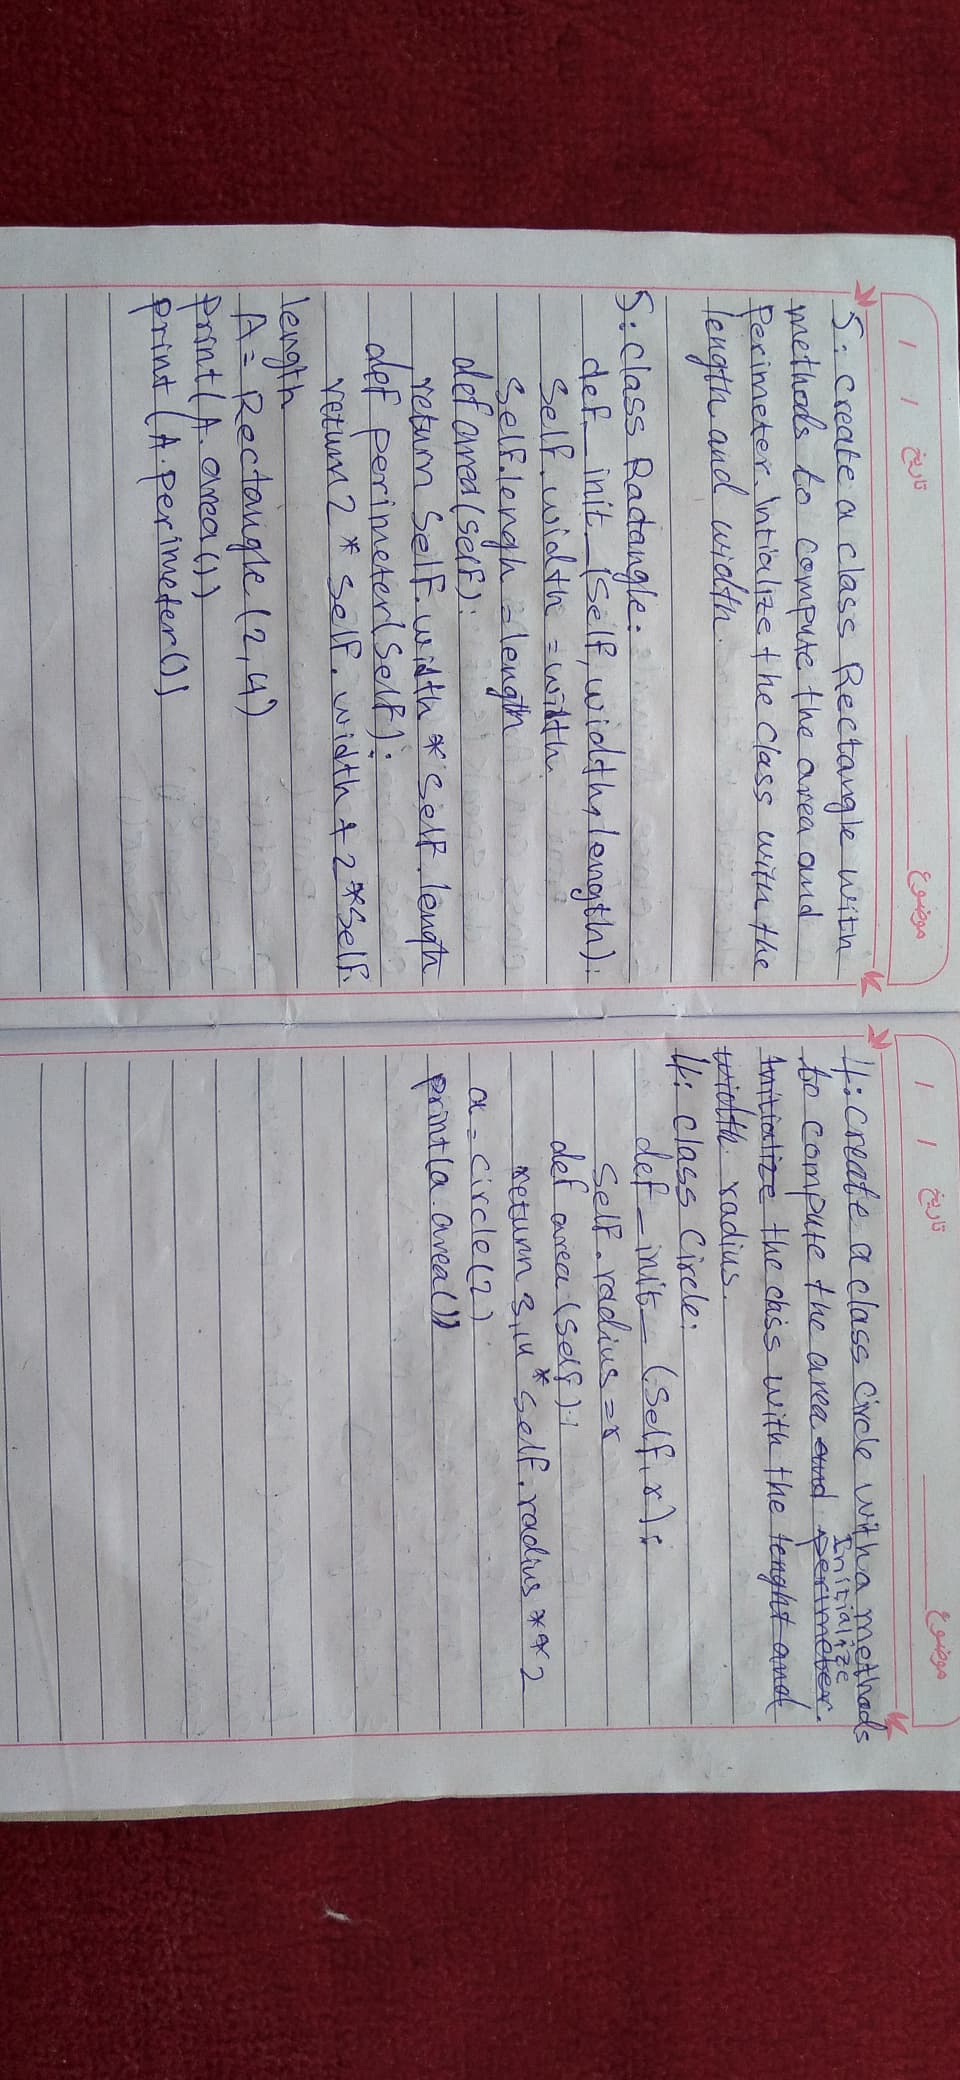 تاریخ
موضوع
5: Create a class Rectangle with
methods to compute the area and
Perimeter. Intialize the class with the
length and width.
5: class Radangle:
def _ init _ (self, width, length):
self. width = width
self. lengh = length
def area (self):
return self. width * self. length
def perimeter(self):
return 2 * self. width + 2 * self.
length
A = Rectangle (2, 4)
print (A. area ())
print (A. perimeter ())
تاریخ
موضوع
4: Create a class Circle with a methods
Initialize
to compute the area and perimeter.
Initialize the class with the lenght and
width radius.
4: class Circle:
def _ init _ (self, r):
self. radius = r
def area (self):
return 3,14 * self. radius ** 2
a = circle (2)
print (a. area ())